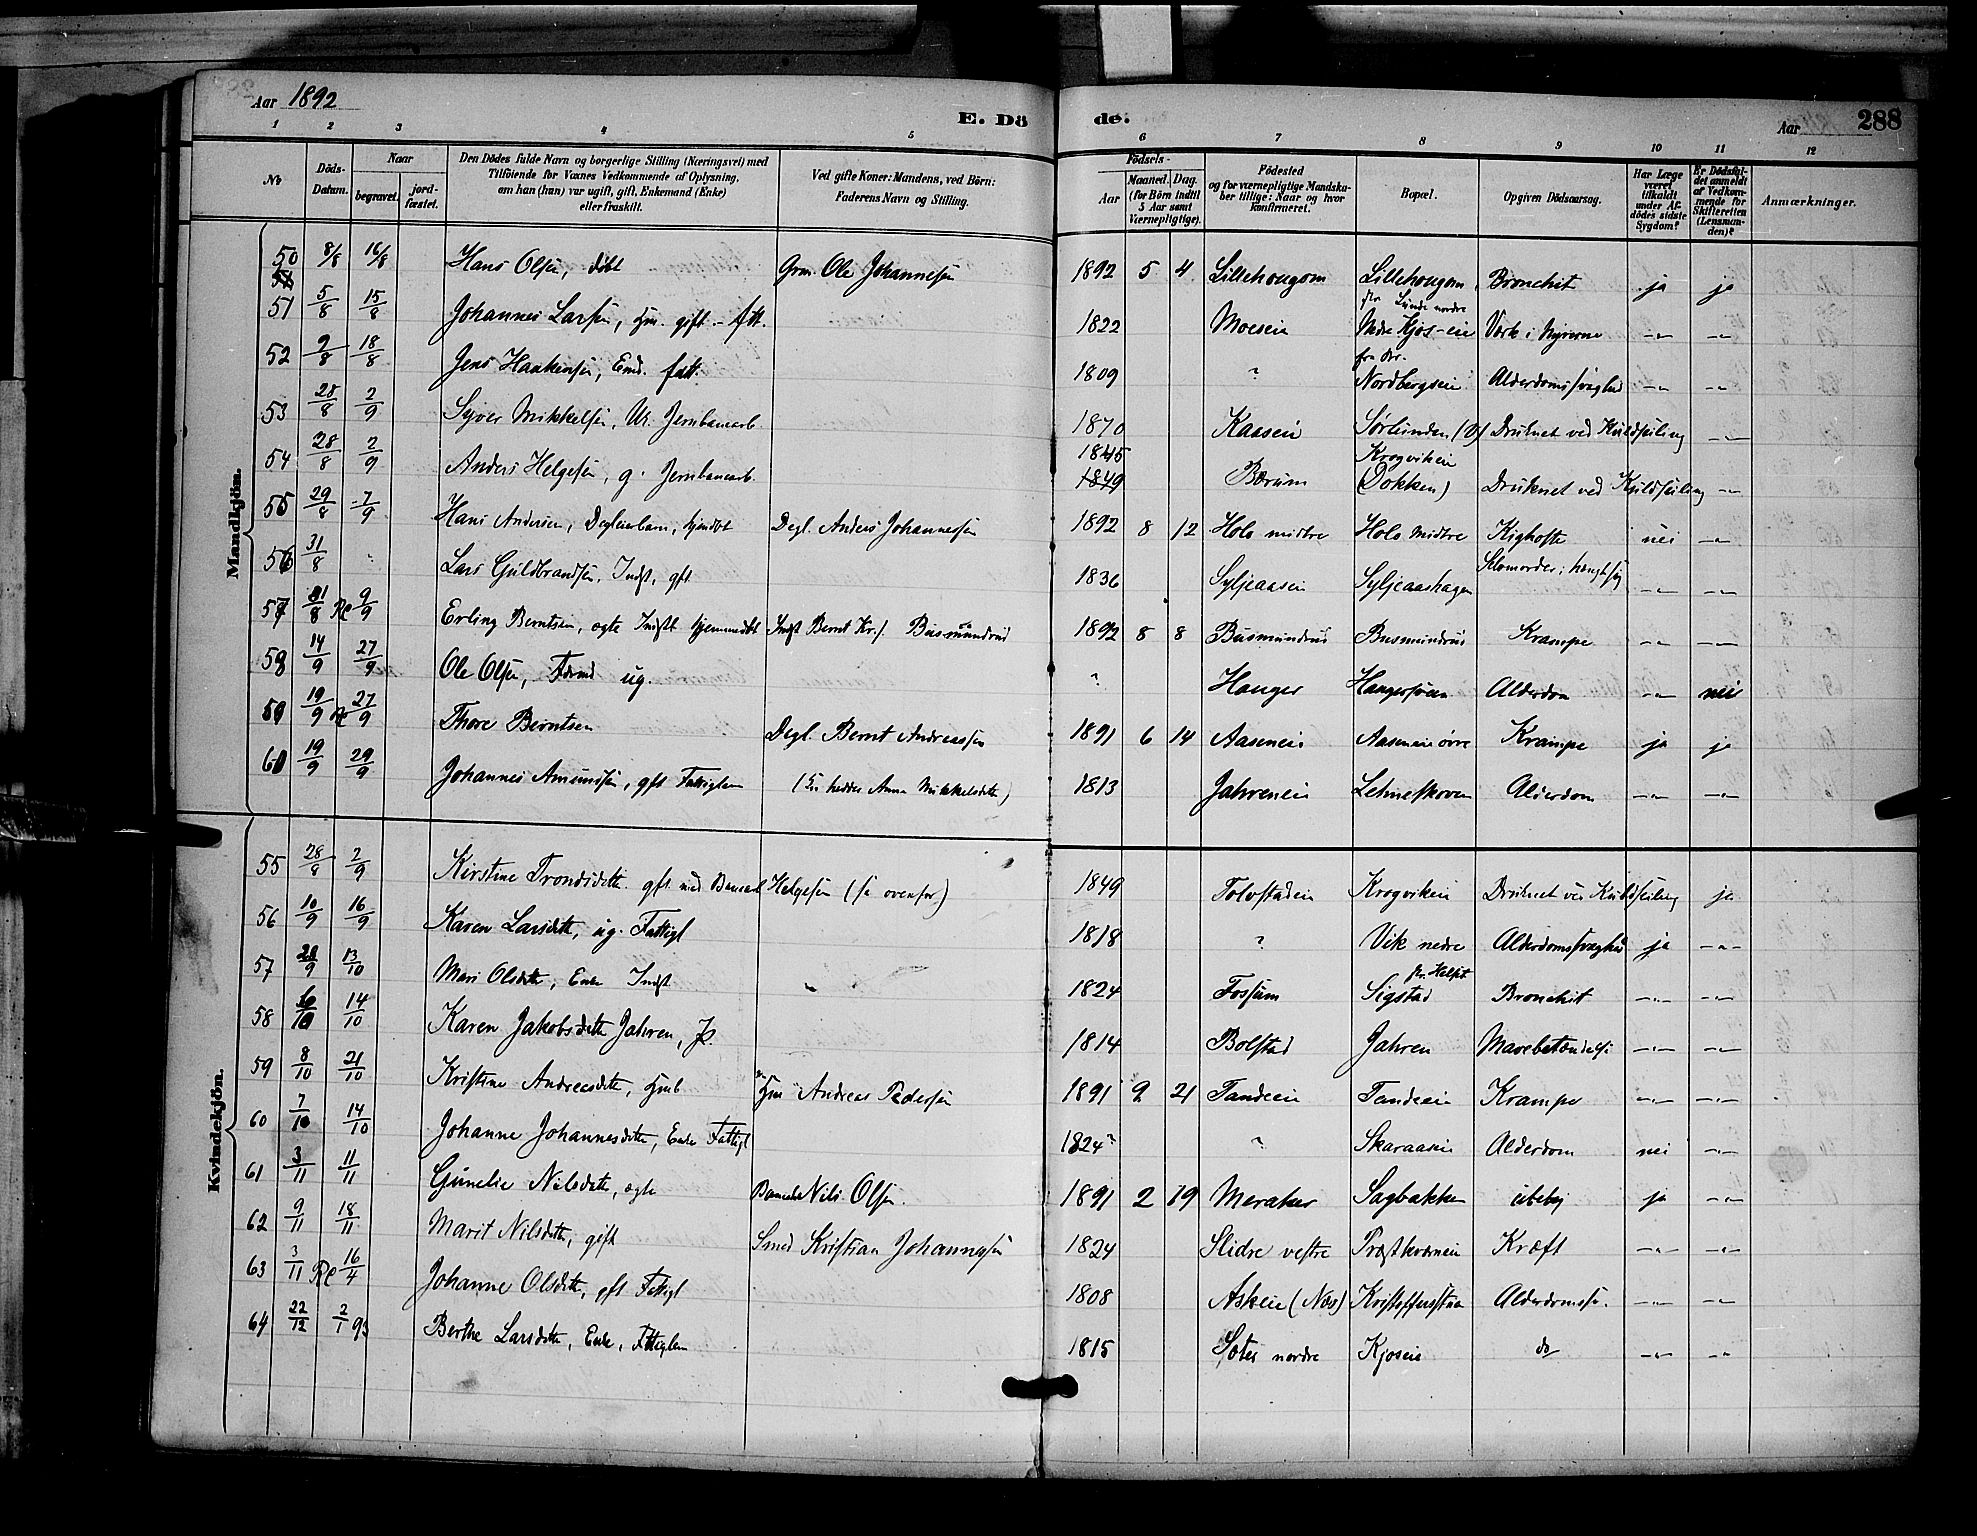 Aar 1892
E. Dö de.
Aar 288
1 2 3 4 5 6 7 8 9 10 11 12
No
Döds-Datum.
Naar
begravet.
jord-fæstet.
Den Dödes fulde Navn og borgerlige Stilling (Næringsvei) med Tilföiende for Voxnes Vedkommende af Oplysning, om han (hun) var ugift, gift, Enkemand (Enke) eller fraskilt.
Ved gifte Koner: Mandens, ved Börn: Faderens Navn og Stilling.
Födsels-
Aar
Maaned. Dag.
(for Börn indtil 5 Aar samt Værnepligtige).
Födested og for værnepligtige Mandskaber tillige: Naar og hvor konfirmeret.
Bopæl.
Opgiven Dödsaarsag.
Har Læge været tilkaldt under Afdödes sidste Sygdom?
Er Dödsfaldet anmeldt af Vedkommende for Skifteretten (Lensmanden)?
Anmærkninger.
Mandkjön.
50 8/8 16/8 Hans Olsen, døbt Grm. Ole Johannesen 1892 5 4 Lillehougom Lillehougom Bronchit ja ja
51 5/8 15/8 Johannes Larsen, Hm. gift - fatt. 1822 Moseie Nedre Kjos-eie Værk i Nyrerne -"- -"-
52 9/8 18/8 Jens Haakensen, Enkd. fatt. 1809 ? Nordbergseie Alderdomssvaghed -"- -"-
53 28/8 2/9 Syver Mikkelsen, Uk. Jernbanearb. 1870 Kaaseie Sørlunden (V) Druknet ved Kuldseiling -"-
54 28/8 2/9 Anders Helgesen, g. Jernbanearb. 1845 1849 Bærum Krogvikeie (Dokken) Druknet ved Kuldseiling -"-
55 29/8 7/9 Hans Andersen, Degleierbarn, hjmdbt Degl. Anders Johannessen 1892 8 12 Holo midtre Holo midtre Kighoste nei -"-
56 31/8 Lars Guldbrandsen, Indst, gft 1836 Syljeaasen Syljeaashagen Selvmorder; hængt sig -"- -"-
57 31/8 R 9/9 Erling Berntsen, ægte Indst hjemmedbt Indst Bernt Kr.s. Busmundrud 1892 8 8 Busmundrud Busmundrud Krampe -"- -"-
58 14/9 27/9 Ole Olsen, ug. ? Hanger Alderdom -"- nei
59 19/9 27/9 Thore Berntsen Degl. Bernt Andreassen 1891 6 14 Aaseneie Aaseneie øvre Krampe ja ja
60 19/9 29/9 Johannes Amundsen, gft Fattiglem (En heder Anna Mikkelsdatter) 1813 Jahreneie Lehneskoven Alderdom -"- -"-
Kvindekjön.
55 28/8 2/9 Kirstine Trondsdatter gft med Banearb Helgesen (se ovenfor) 1849 Tolvstadeie Krogvikeie Druknet ved Kuldseiling ja
56 10/9 16/9 Karen Larsdatter, ug. Fattigl 1818 ? Vik nedre Alderdomssvaghed ja -"-
57 28/9 13/10 Mari Olsdatter, Enke Indst 1824 Fossum Sigstad Bronchit -"- -"-
58 6/10 14/10 Karen Jakobsdatter Jahren, 1814 Bolstad Jahren Mavebetændelse -"- -"-
59 8/10 21/10 Kristine Andreasdatter, Hmb Hm Andreas Pedersen 1891 9 21 Tandeeie Tandeeie Krampe -"- -"-
60 7/10 14/10 Johanne Johannesdatter, Enke Fattigl 1824? ? Skaraaseie Alderdom nei -"-
61 3/11 11/11 Gunelie Nilsdatter, ægte Banearb Nils Olsen. 1891 2 19 Meraker Sagbakken ubeky ja -"-
62 9/11 18/11 Marit Nilsdatter, gift Smed Kristian Johannesen 1824 Slidre vestre Kræft -"- -"-
63 3/11 R 16/4 Johanne Olsdatter, gft Fattigl 1808 Askeie (Næs) Kristoffersstuen Alderdomssv. -"- -"-
64 22/12 2/1 93 Berthe Larsdatter, Enke, Fattiglem 1815 Soter nordre Kjoseie do -"- -"-